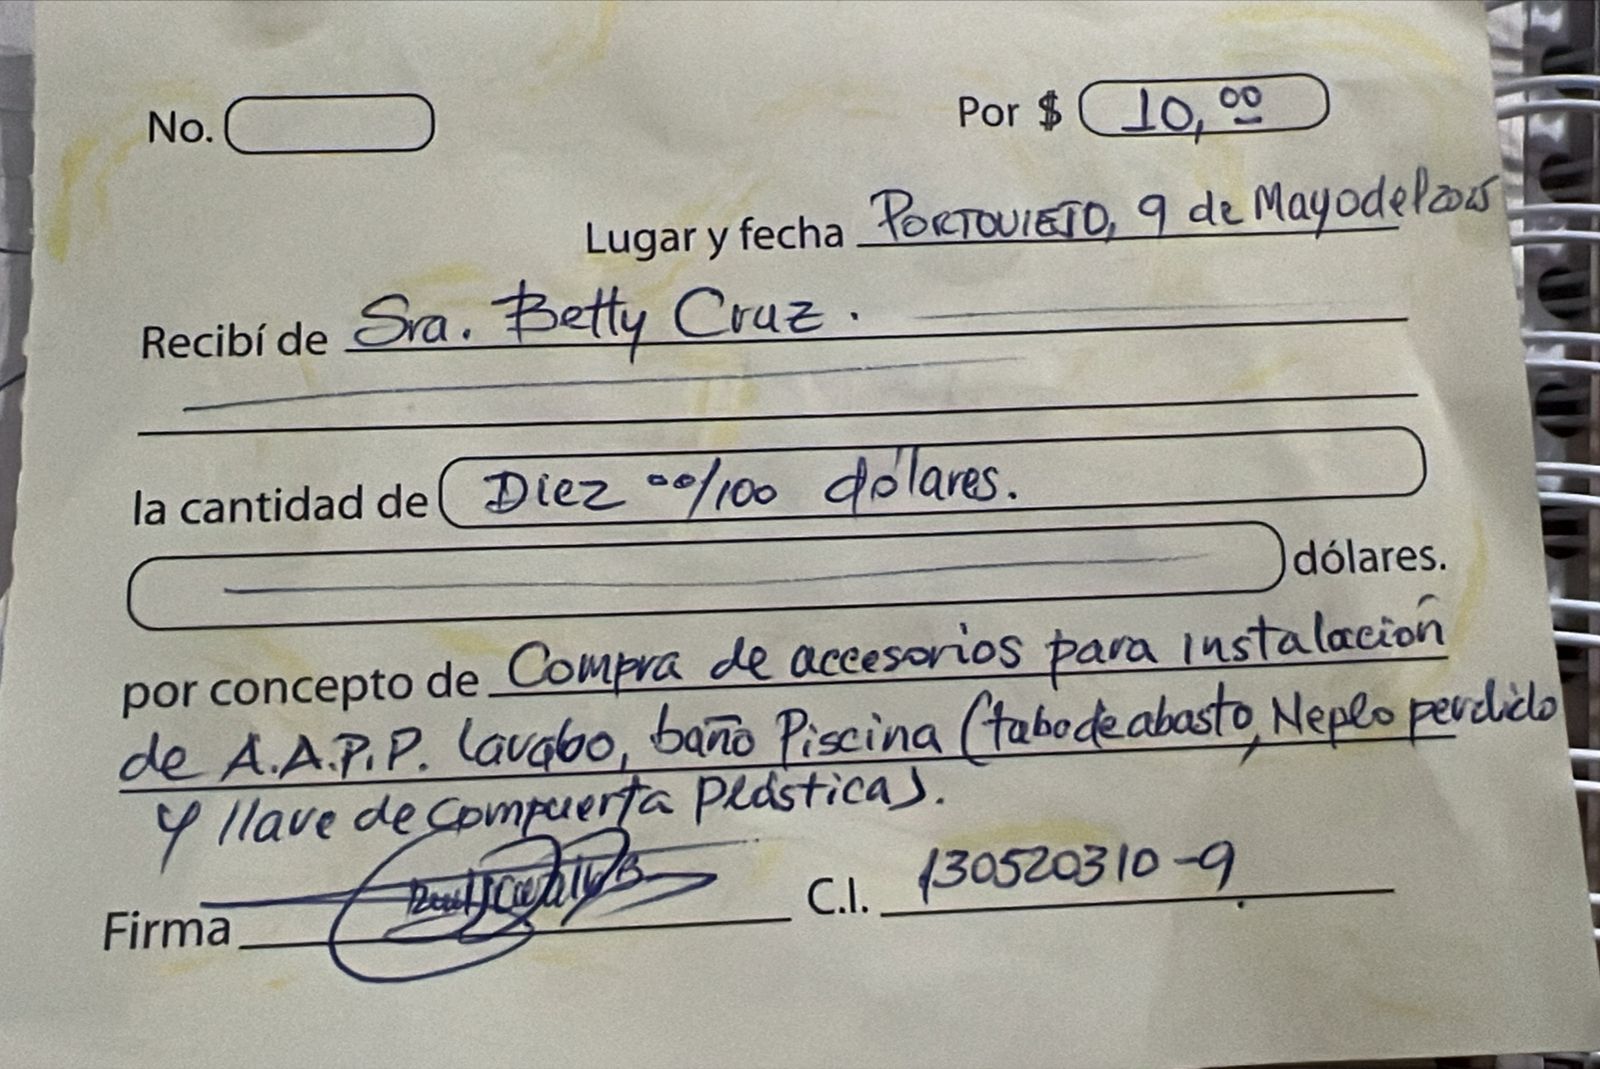 No.
Por $ 10,00
Lugar y fecha PORTOVIEJO, 9 de Mayo del 2025
Recibí de Sra. Betty Cruz.
la cantidad de Diez 00/100 dólares.
dólares.
por concepto de Compra de accesorios para instalación
de A.A.P.P. lavabo, baño Piscina (tubo de abasto, Neplo perdido
y llave de compuerta plástica).
Firma
C.I. 130520310-9